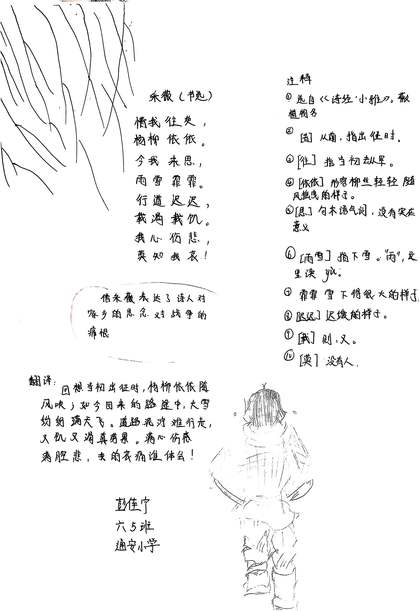 采薇（节选）
昔我往矣，
杨柳依依。
今我来思，
雨雪霏霏。
行道迟迟，
载渴载饥。
我心伤悲，
莫知我哀！
借采薇表达了诗人对
家乡的思念 对战争的
痛恨
注释
①选自《诗经·小雅》。薇
植物名
②[昔]从前，指出征时．
③[往]指当初从军。
④[依依]形容柳丝轻轻随
风摇曳的样子。
⑤[思]句末语气词，没有实在
意义
⑥[雨雪]指下雪。“雨”，这
里读 yù．
⑦霏霏 雪下得很大的样子
⑧[迟迟]迟缓的样子。
⑨[载]则，又。
⑩[莫]没有人．
翻译：回想当初出征时，杨柳依依随
风吹；如今回来的路途中，大雪
纷纷满天飞。道路泥泞难行走，
又饥又渴真劳累。满心伤感
满腔悲，我的哀痛谁体会！
彭佳宁
六5班
通安小学